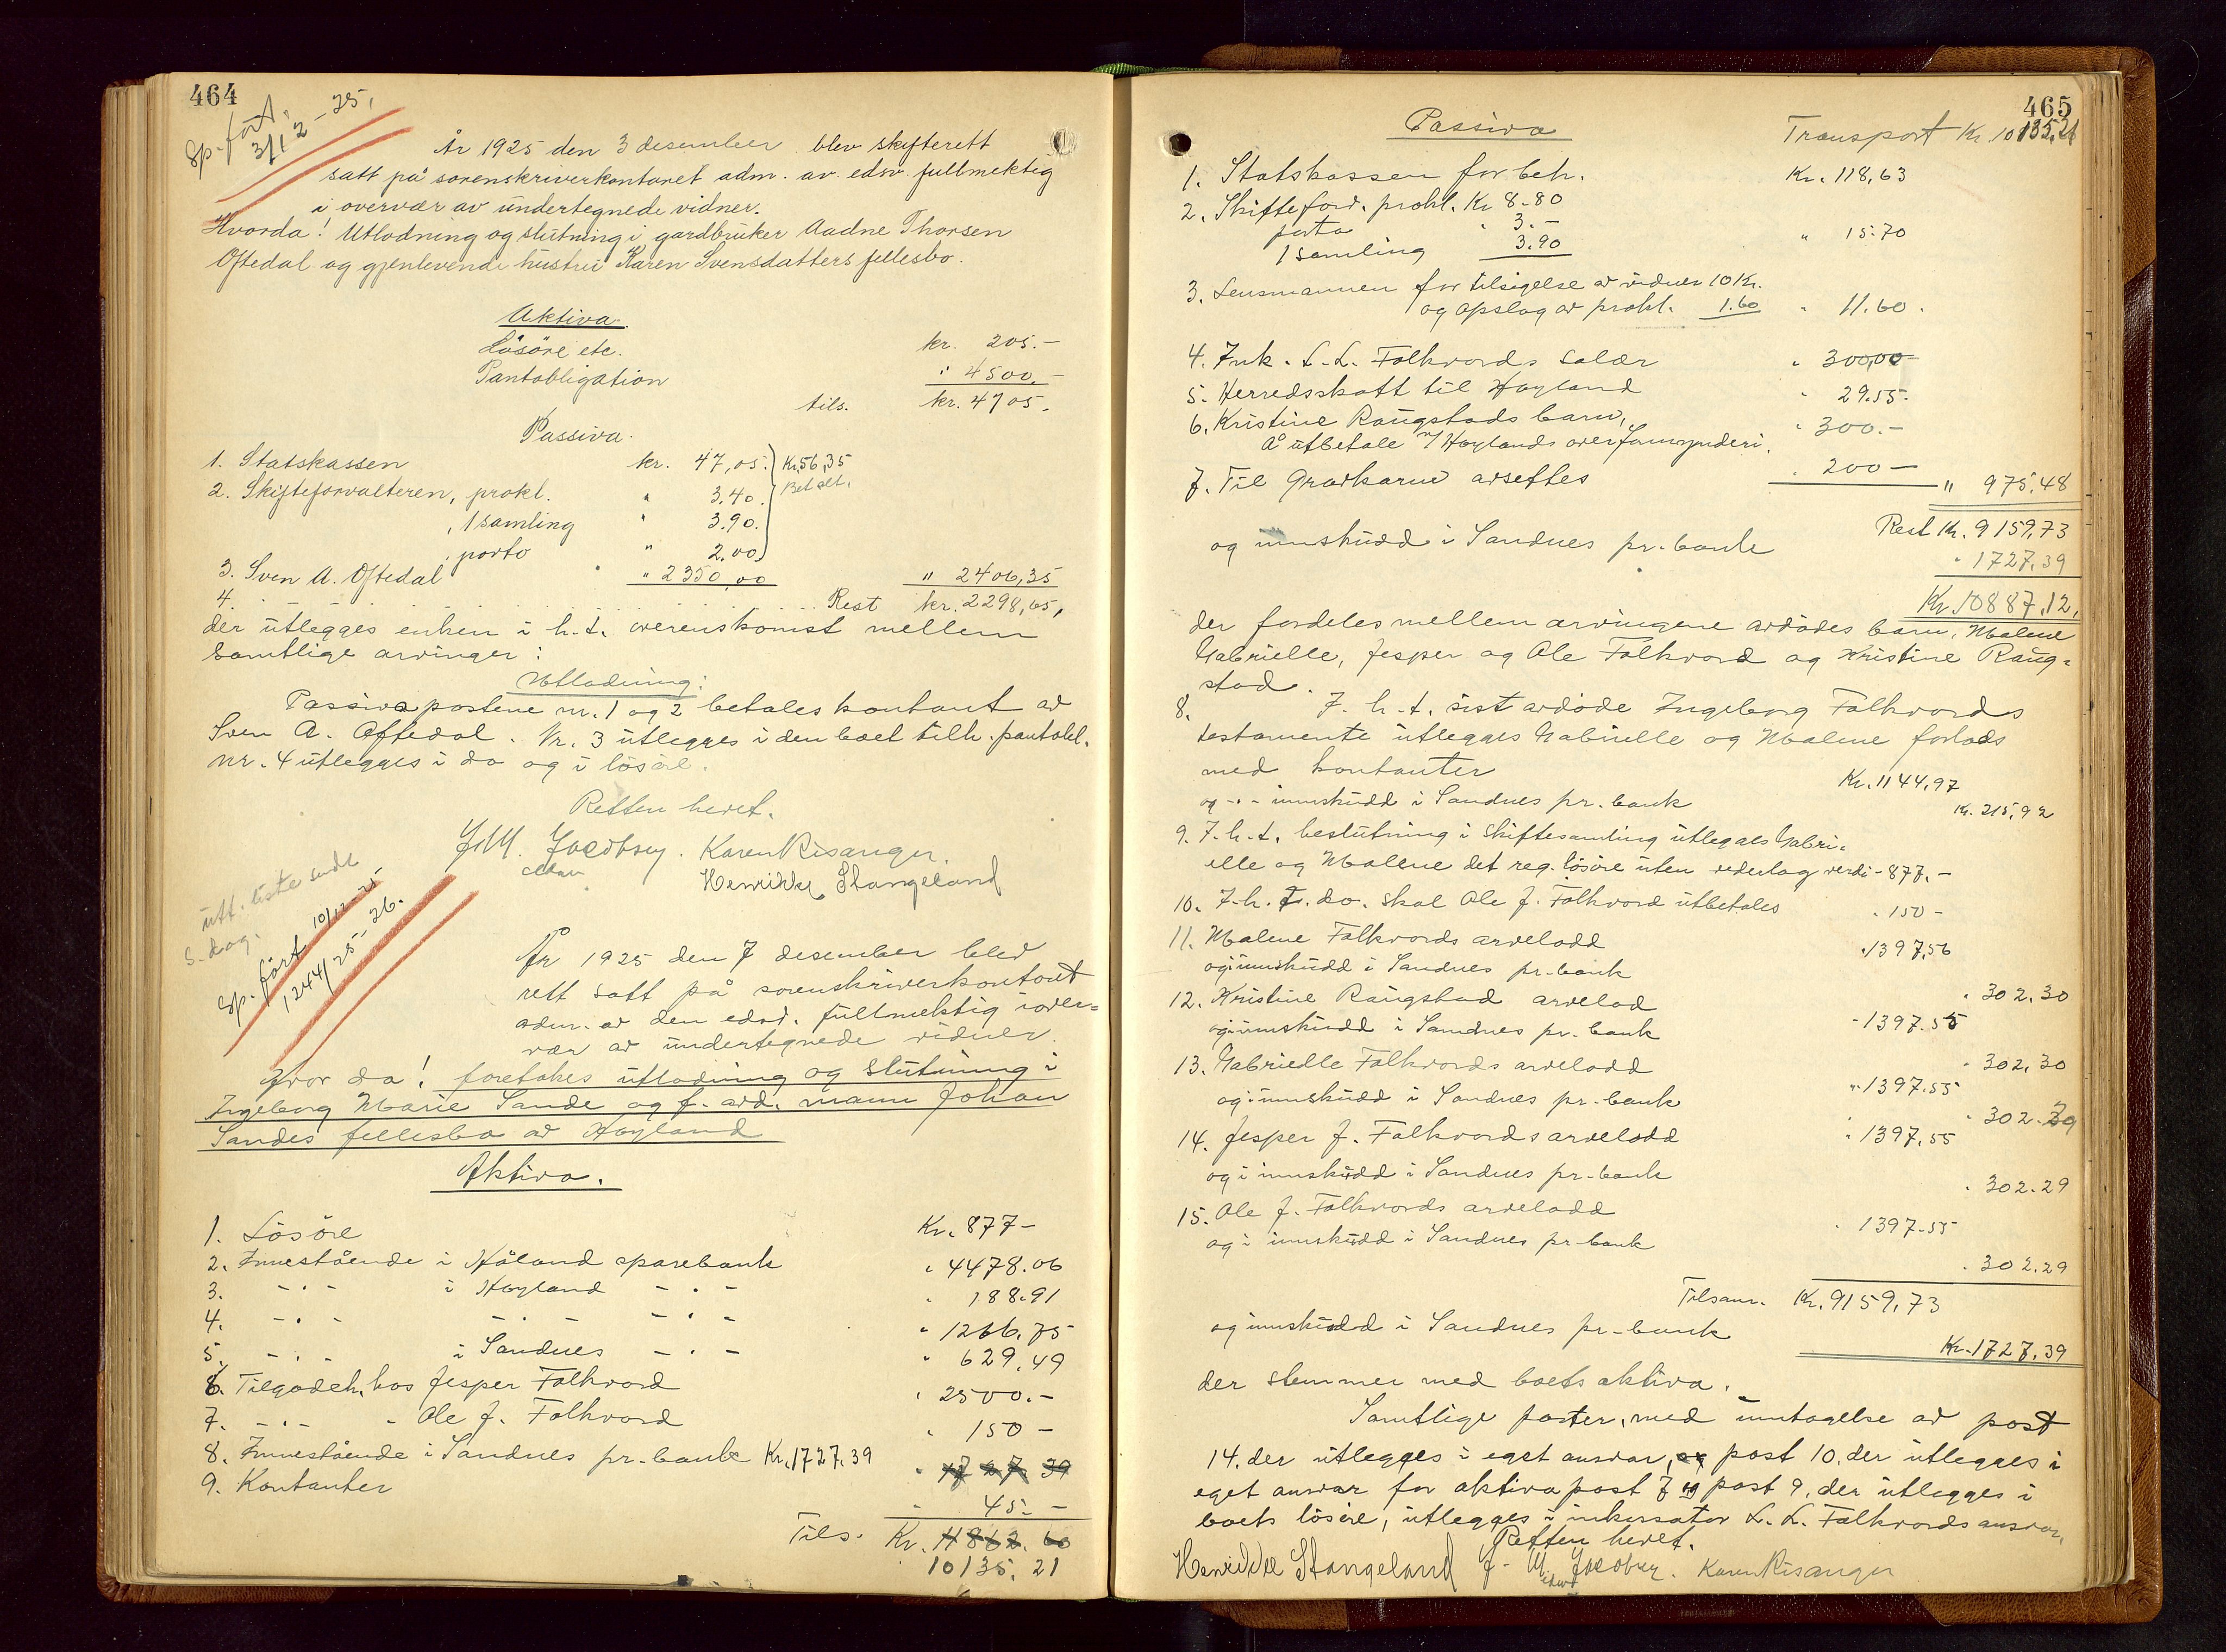 464
Sp. ført.
3/12-25,
År 1925 den 3 desember blev skifterett
satt på sorenskriverkontoret adm. av edsv. fullmektig
i overvær av undertegnede vidner.
Hvorda! Utlodning og slutning i gardbruker Aadne Thorsen
Oftedal og gjenlevende hustru Karen Svensdatters fellesbo.
Aktiva.
Løsøre etc. kr. 205.-
Pantobligation " 4500.-
tils. kr. 4705.
Passiva.
1. Statskassen kr. 47,05. Kr. 56,35
2. Skifteforvalteren, prokl. " 3.40. Betalt.
, 1 samling " 3.90.
, porto " 2.00
3. Sven A. Oftedal " 2350,00 " 2406,35
4. . . . . . . . . . . . Rest kr. 2298,65,
der utlegges enken i h.t. overenskomst mellem
samtlige arvinger:
Utlodning:
Passivapostene nr. 1 og 2 betales kontant av
Sven A. Oftedal. Nr. 3 utlegges i den boet tilh. pantobl.
nr. 4 utlegges i do og i løsøre.
Retten hevet.
J. M. Jacobsen. Karen Risanger.
Henrikke Stangeland
utt. liste sendt
s. dag.
Sp. ført 10/12-25
1244/25-26.
År 1925 den 7 desember blev
rett satt på sorenskriverkontoret
adm. av den edsv. fullmektig i over=
vær av undertegnede vidner.
Hvor da! foretokes utlodning og slutning i
Ingeborg Marie Sande og f. avd. mann Johan
Sandes fellesbo av Høyland
Aktiva.
1. Løsøre Kr. 877-
2. Innestående i Håland sparebank " 4478.06
3. -"- i Høyland -"- " 188.91
4. -"- -"- -"- " 1266.75
5. -"- i Sandnes -"- " 629,49
6. Tilgodeh. hos Jesper Folkvord " 2500.-
7. -"- " Ole J. Folkvord " 150-
8. Innestående i Sandnes pr.-bank Kr. 1727.39 " 1727.39
9. Kontanter " 45.-
Tils. Kr. 11862.60
10135.21
465
Passiva Transport Kr. 10135,21
1. Statskassen for beh. Kr. 118,63
2. Skifteford. prokl. Kr 8-80
porto " 3.-
1 samling 3.90 " 15.70
3. Lensmannen for tilsigelse av vidner 10 Kr.
og opslag av prokl. 1.60 " 11.60.
4. Ink. L. L. Folkvords salær " 300,00
5. Herredsskatt til Høyland " 29.55-
6. Kristine Raugstads barn,
Å utbetale Høylands overformynderi. " 300.-
7. Til gravkarm avsettes " 200- " 975.48
Rest Kr. 9159,73
og innskudd i Sandnes pr.-bank " 1727,39
Kr. 10887,12,
der fordeles mellem arvingene avdødes barn, Malene
Gabrielle, Jesper og Ole Folkvord og Kristine Raug=
stad.
8. I h.t. sist avdøde Ingeborg Folkvords
testamente utlegges Gabrielle og Malene forlods
med kontanter Kr. 1144,97
og -"- innskudd i Sandnes pr.-bank Kr. 215,92
9. I h.t. beslutning i skiftesamling utlegges Gabri=
elle og Malene det reg. løsøre uten vederlag verdi - 877.-
10. I h.t. do. skal Ole J. Folkvord utbetales " 150-
11. Malene Folkvords arvelodd " 1397,56
og i innskudd i Sandnes pr-bank " 302,30
12. Kristine Raugstad arvelod - 1397.55
og i innskudd i Sandnes pr.-bank " 302,30
13. Gabrielle Folkvords arvelodd " 1397.55
og i innskudd i Sandnes pr.-bank " 302.29
14. Jesper J. Folkvords arvelodd " 1397,55
og i innskudd i Sandnes pr-bank " 302.29
15. Ole J. Folkvords arvelodd " 1397-55
og i innskudd i Sandnes pr-bank " 302.29
Tilsam. Kr. 9159,73
og innskudd i Sandnes pr-bank Kr. 1727,39
der stemmer med boets aktiva.
Samtlige poster, med unntagelse av post
14. der utlegges i eget ansvar, post 10. der utlegges i
eget ansvar for aktivapost 7 og post 9. der utlegges i
boets løsøre, utlegges i inkassator L. L. Folkvords ansvar.
Retten hevet.
Henrikke Stangeland J. M. Jacobsen. Karen Risanger